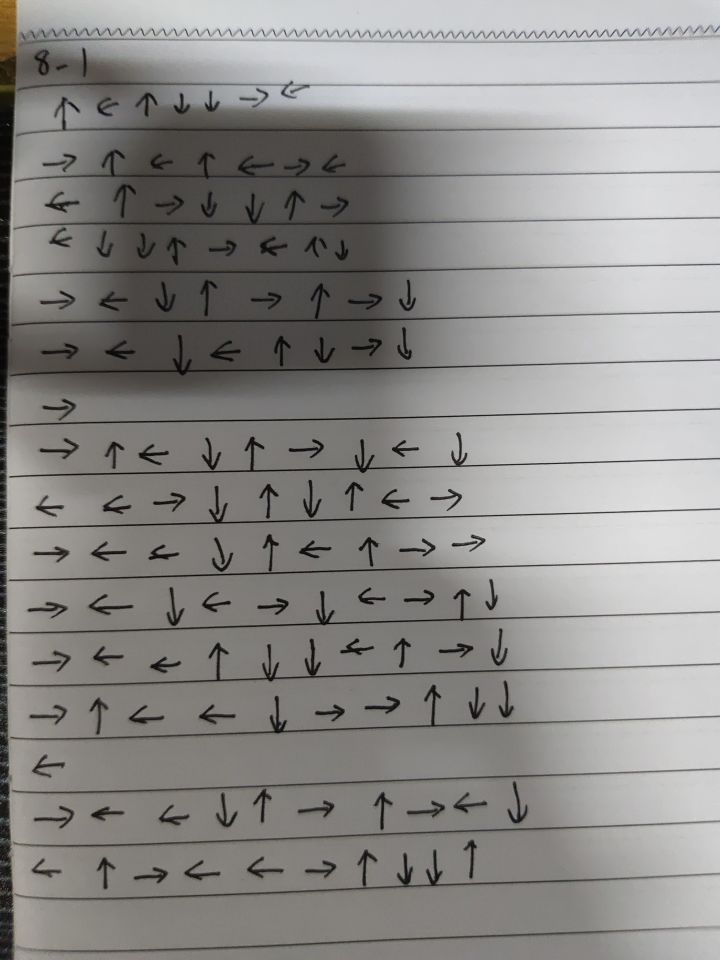 8-1
↑ ← ↑ ↓ ↓ → ←
→ ↑ ← ↑ ← → ←
← ↑ → ↓ ↓ ↑ →
← ↓ ↓ ↑ → ← ↑ ↓
→ ← ↓ ↑ → ↑ → ↓
→ ← ↓ ← ↑ ↓ → ↓
→
→ ↑ ← ↓ ↑ → ↓ ← ↓
← ← → ↓ ↑ ↓ ↑ ← →
→ ← ← ↓ ↑ ← ↑ → →
→ ← ↓ ← → ↓ ← → ↑ ↓
→ ← ← ↑ ↓ ↓ ← ↑ → ↓
→ ↑ ← ← ↓ → → ↑ ↓ ↓
←
→ ← ← ↓ ↑ → ↑ → ← ↓
← ↑ → ← ← → ↑ ↓ ↓ ↑